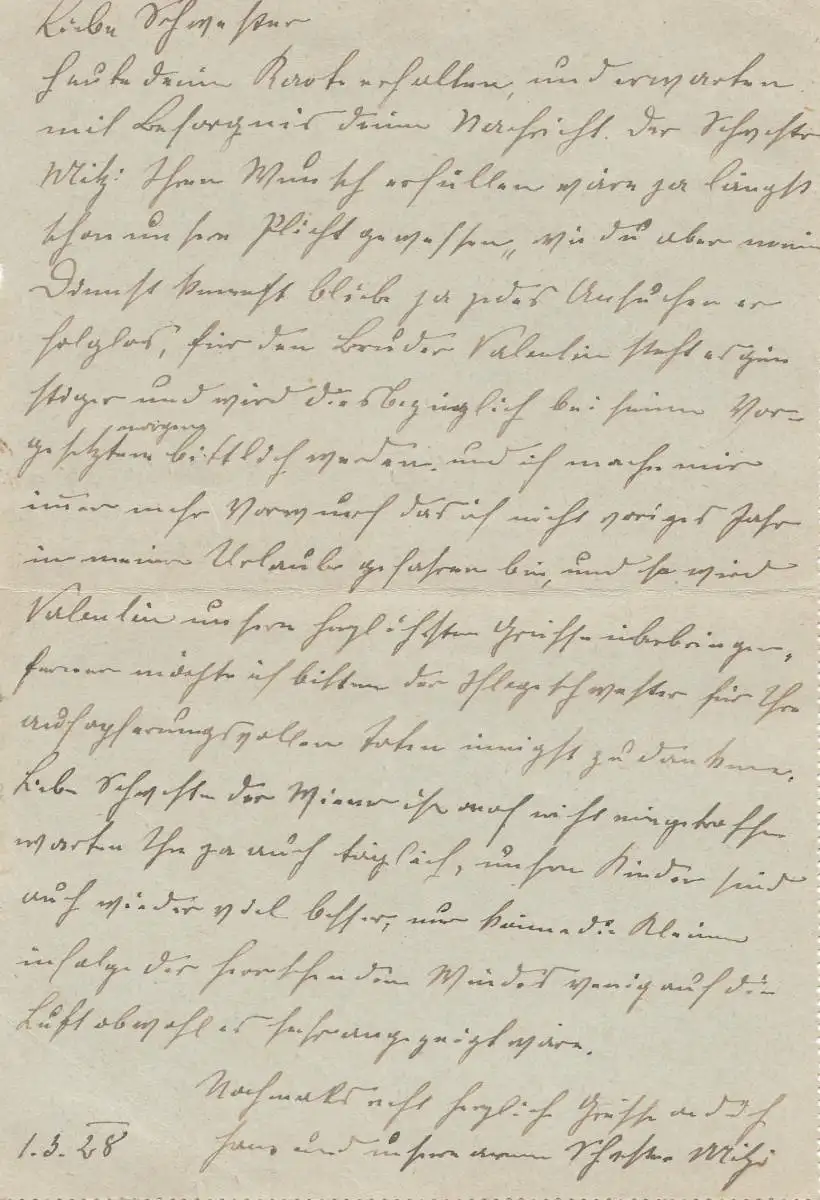 Liebe Schwester
heute deine Karte erhalten, und erwarten
mit Besorgnis deine Nachricht. Der Schwester
Mitzi Ihren Wunsch erfüllen wäre ja längst
schon unsere Plicht gewessen, wie du aber meine
Dienst kennst bliebe ja jedes Ansuchen er
folglos, für den Bruder Valentin steht es gün
stiger und wird diesbezüglich bei seinen Vor-
gesetzten bittlich werden. und ich mache mir
immer mehr Vorwurf das ich nicht voriges Jahr
in meinen Urlaube gefahren bin, und so wird
Valentin unsere herzlichsten Grüsse überbringen,
ferner möchte ich bitten der Pflegeschwester für Ihre
aufopferungsvollen Taten innigst zu danken.
Liebe Schwester der Wiener ist noch nicht eingetroffen
warten Ihn ja auch täglich, unsere Kinder sind
auch wieder viel besser, nur können die Kleinen
infolge des herrschenden Windes wenig auf die
Luft obwohl es sehr angezeigt wäre.
Nochmals recht herzliche Grüsse an dich
Hans und unsere arme Schwester Mitzi
1.3.28